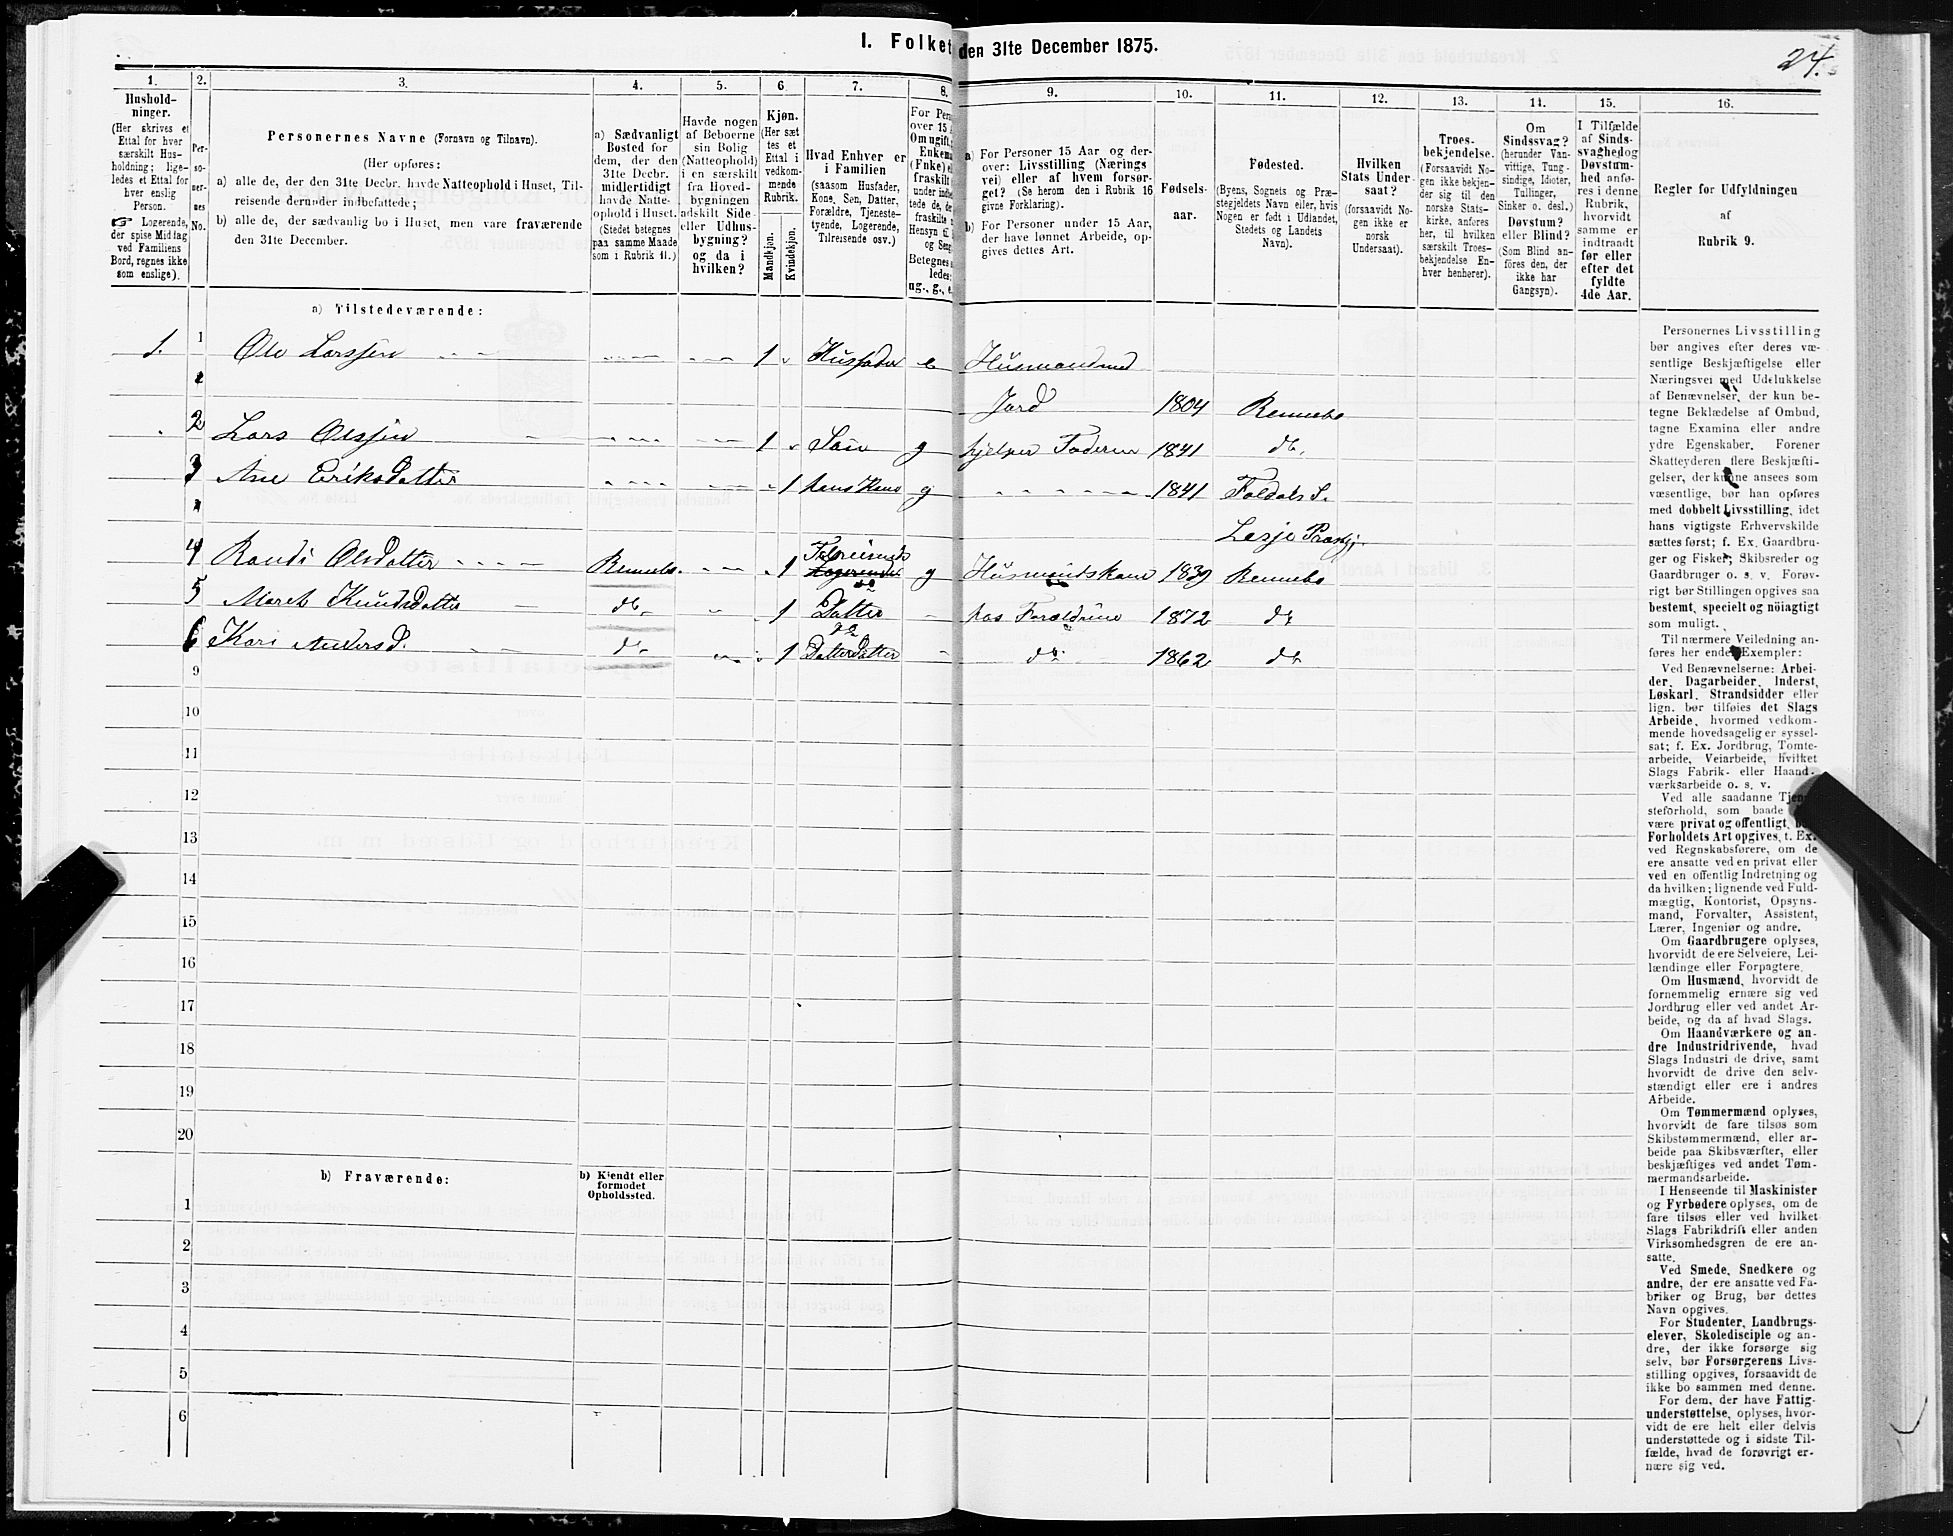 I. Folket den 31te December 1875.
24.
1.
2.
3.
4.
5.
6.
7.
8.
9.
10.
11.
12.
13.
14.
15.
16.
Hushold-
ninger.
(Her skrives et
Ettal for hver
særskilt Hus-
holdning; lige-
ledes et Ettal for
hver enslig
Person.
☞ Logerende,
der spise Middag
ved Familiens
Bord, regnes ikke
som enslige).
Per-
so-
ner-
nes
No.
Personernes Navne (Fornavn og Tilnavn).
(Her opføres:
a) alle de, der den 31te Decbr. havde Natteophold i Huset, Til-
reisende derunder indbefattede;
b) alle de, der sædvanlig bo i Huset, men vare fraværende
den 31te December.
a) Sædvanligt
Bosted for
dem, der den
31te Decbr.
midlertidigt
havde Natte-
ophold i Huset.
(Stedet betegnes
paa samme Maade
som i Rubrik 11.)
Havde nogen
af Beboerne
sin Bolig
(Natteophold)
i en særskilt
fra Hoved-
bygningen
adskilt Side-
eller Udhus-
bygning?
og da i
hvilken?
Kjøn.
(Her sæt
tes et
Ettal i
vedkom-
mende
Rubrik.
Mandkjøn.
Kvindekjøn.
Hvad Enhver er
i Familien
(saasom Husfader,
Kone, Søn, Datter,
Forældre, Tjeneste-
tyende, Logerende,
Tilreisende osv.)
For Pers
over 15 A
Om ugift,
Enkema
(Fnke) el
fraskilt
under indbe
tede de, de
fraskilte
Hensyn til
og Seng
Betegnes s
ledes:
ug., g., e.
a) For Personer 15 Aar og der-
over: Livsstilling (Nærings
vei) eller af hvem forsør-
get? (Se herom den i Rubrik 16
givne Forklaring).
b) For Personer under 15 Aar,
der have lønnet Arbeide, op-
gives dettes Art.
Fødsels-
aar.
Fødested.
(Byens, Sognets og Præ-
stegjeldets Navn eller, hvis
Nogen er født i Udlandet,
Stedets og Landets
Navn).
Hvilken
Stats Under-
saat?
(forsaavidt No-
gen ikke er
norsk
Undersaat).
Troes-
bekjendelse.
(Forsaavidt No-
gen ikke bekjen-
der sig til den
norske Stats-
kirke, anføres
her, til hvilken
særskilt Troes-
bekjendelse En-
hver henhører).
Om
Sindssvag?
(herunder Van-
vittige, Tung-
sindige, Idioter,
Tullinger,
Sinker o. desl.)
Døvstum?
eller Blind?
(Som Blind an-
føres den, der
ikke har
Gangsyn).
I Tilfælde
af Sinds-
svaghed og
Døvstum-
hed anfø-
res i denne
Rubrik,
hvorvidt
samme er
indtraadt
før eller
efter det
fyldte
4de Aar.
Regler for Udfyldningen
af
Rubrik 9.
a) Tilstedeværende:
1. 1 Ole Larssen 1 Husfader e Husmand med
Jord 1804 Rennebo
2 Lars Olssen 1 Søn g hjelper Faderen 1841 do.
3 Ane Eriksdatter 1 hans Kone g 1841 Foldals S.
Lesje Præstgj.
4 Randi Olsdatter Rennebo. 1 Tilreisende Logerende g Husmandskone 1839 Rennebo
5 Maret Knudsdatter do 1 Datter hos Forældrene 1872 do
6 Kari Anders D. do 1 Datterdatter do 1862 do
9
10
11
12
13
14
15
16
17
18
19
20
b) Fraværende:
b) Kjendt eller
formodet
Opholdssted.
1
2
3
4
5
6
Personernes Livsstilling
bør angives efter deres væ-
sentlige Beskjæftigelse eller
Næringsvei med Udelukkelse
af Benævnelser, der kun be-
tegne Beklædelse af Ombud,
tagne Examina eller andre
ydre Egenskaber. Forener
Skatteyderen flere Beskjæfti-
gelser, der kunne ansees som
væsentlige, bør han opføres
med dobbelt Livsstilling, idet
hans vigtigste Erhvervskilde
sættes først; f. Ex. Gaardbru-
ger og Fisker; Skibsreder og
Gaardbruger o. s. v. Forøv-
rigt bør Stillingen opgives saa
bestemt, specielt og nöiagtigt
som muligt.
Til nærmere Veiledning an-
føres her endel Exempler:
Ved Benævnelserne: Arbei-
der, Dagarbeider, Inderst,
Løskarl, Strandsidder eller
lign. bør tilføies det Slags
Arbeide, hvormed vedkom-
mende hovedsagelig er syssel-
sat; f. Ex. Jordbrug, Tomte-
arbeide, Veiarbeide, hvilket
Slags Fabrik- eller Haand-
værksarbeide o. s. v.
Ved alle saadanne Tjene-
steforhold, som baade kan
være privat og offentligt, bør
Forholdets Art opgives, t. Ex.
ved Regnskabsførere, om de
ere ansatte ved en privat eller
ved en offentlig Indretning og
da hvilken; lignende ved Fuld-
mægtig, Kontorist, Opsyns-
mand, Forvalter, Assistent,
Lærer, Ingeniør og andre.
Om Gaardbrugere oplyses,
hvorvidt de ere Selveiere, Lei-
lændinge eller Forpagtere.
Om Husmænd, hvorvidt de
fornemmelig ernære sig ved
Jordbrug eller ved andet Ar-
beide, og da af hvad Slags.
Om Haandværkere og an-
dre Industridrivende, hvad
Slags Industri de drive, samt
hvorvidt de drive den selv-
stændigt eller ere i andres
Arbeide.
Om Tømmermænd oplyses,
hvorvidt de fare tilsøs som
Skibstømmermænd, eller ar-
beide paa Skibsværfter, eller
beskjæftiges ved andet Tøm-
mermandsarbeide.
I Henseende til Maskinister
og Fyrbødere oplyses, om de
fare tilsøs eller ved hvilket
Slags Fabrikdrift eller anden
Virksomhedsgren de ere an-
satte.
Ved Smede, Snedkere og
andre, der ere ansatte ved Fa-
briker og Brug, bør dettes
Navn opgives.
For Studenter, Landbrugs-
elever, Skoledisciple og an-
dre, der ikke forsørge sig
selv, bør Forsørgerens Livs-
stilling opgives, forsaavidt de
ikke bo sammen med denne.
For dem, der have Fattig-
understøttelse, oplyses, hvor-
vidt de ere helt eller delvis
understøttede og i sidste Til-
fælde, hvad de forøvrigt er-
nære sig ved.